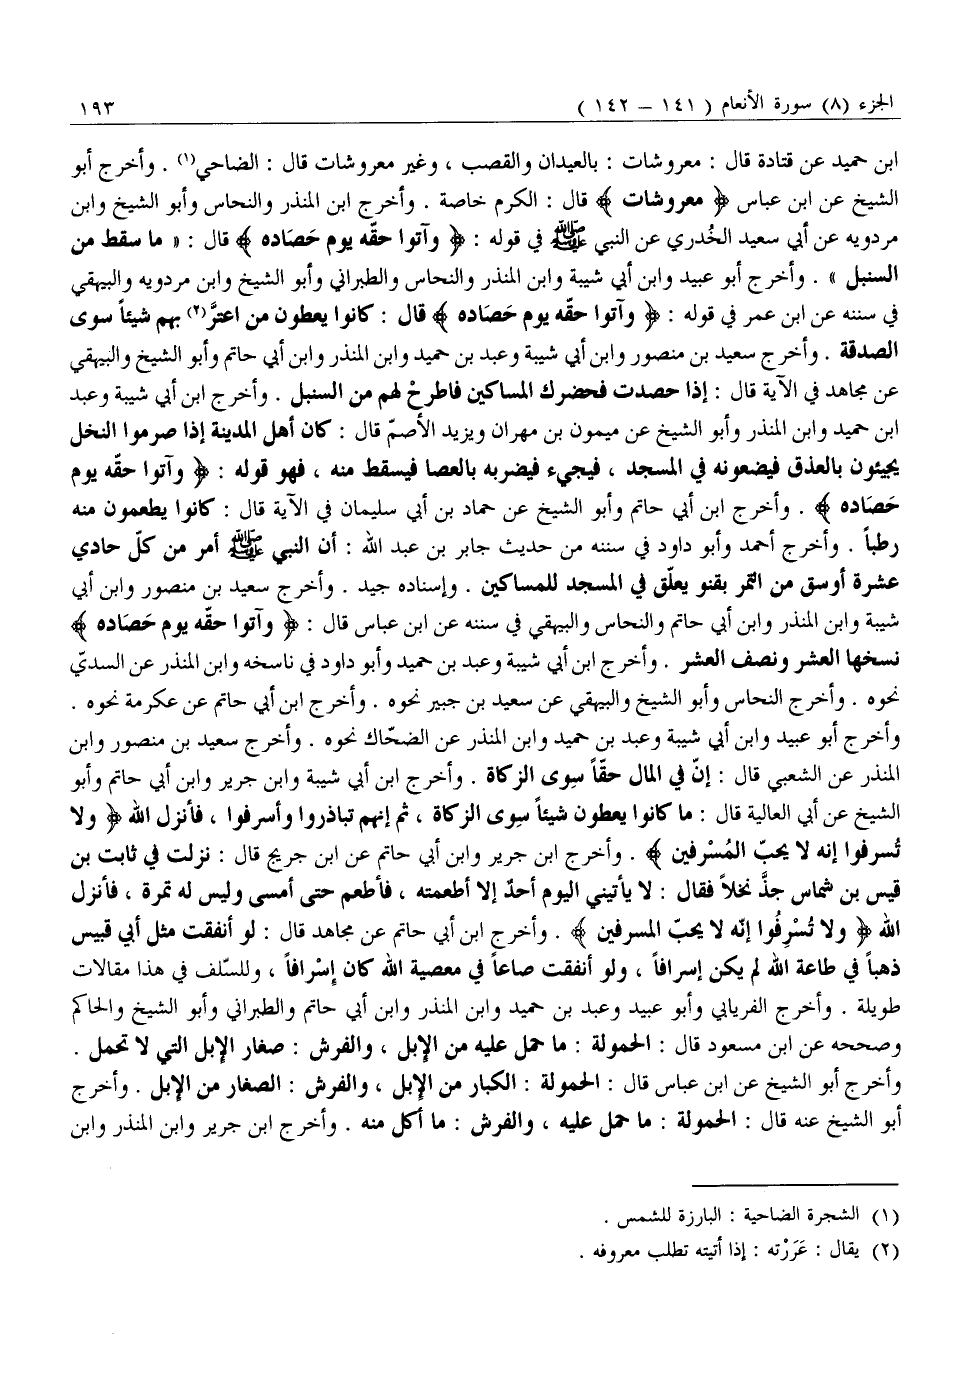 الجزء (٨) سورة الأنعام ( ١٤١ – ١٤٢ ) ١٩٣
ابن حميد عن قتادة قال : معروشات : بالعيدان والقصب ، وغير معروشات قال : الضاحي(١) . وأخرج أبو
الشيخ عن ابن عباس ﴿ معروشات ﴾ قال : الكرم خاصة . وأخرج ابن المنذر والنحاس وأبو الشيخ وابن
مردويه عن أبي سعيد الخُدري عن النبي ﷺ في قوله : ﴿ وآتوا حقّه يوم حَصَاده ﴾ قال : « ما سقط من
السنبل » . وأخرج أبو عبيد وابن أبي شيبة وابن المنذر والنحاس والطبراني وأبو الشيخ وابن مردويه والبيهقي
في سننه عن ابن عمر في قوله : ﴿ وآتوا حقّه يوم حَصَاده ﴾ قال : كانوا يعطون من اعترَّ(٢) بهم شيئاً سوى
الصدقة . وأخرج سعيد بن منصور وابن أبي شيبة وعبد بن حميد وابن المنذر وابن أبي حاتم وأبو الشيخ والبيهقي
عن مجاهد في الآية قال : إذا حصدت فحضرك المساكين فاطرحْ لهم من السنبل . وأخرج ابن أبي شيبة وعبد
ابن حميد وابن المنذر وأبو الشيخ عن ميمون بن مهران ويزيد الأصمّ قال : كان أهل المدينة إذا صرموا النخل
يجيئون بالعذق فيضعونه في المسجد ، فيجيء فيضربه بالعصا فيسقط منه ، فهو قوله : ﴿ وآتوا حقّه يوم
حَصَاده ﴾ . وأخرج ابن أبي حاتم وأبو الشيخ عن حماد بن أبي سليمان في الآية قال : كانوا يطعمون منه
رطباً . وأخرج أحمد وأبو داود في سننه من حديث جابر بن عبد الله : أن النبي ﷺ أمر من كلّ حادي
عشرة أوسق من التمر بقنو يعلّق في المسجد للمساكين . وإسناده جيد . وأخرج سعيد بن منصور وابن أبي
شيبة وابن المنذر وابن أبي حاتم والنحاس والبيهقي في سننه عن ابن عباس قال : ﴿ وآتوا حقّه يوم حَصَاده ﴾
نسخها العشر ونصف العشر . وأخرج ابن أبي شيبة وعبد بن حميد وأبو داود في ناسخه وابن المنذر عن السديّ
نحوه . وأخرج النحاس وأبو الشيخ والبيهقي عن سعيد بن جبير نحوه . وأخرج ابن أبي حاتم عن عكرمة نحوه .
وأخرج أبو عبيد وابن أبي شيبة وعبد بن حميد وابن المنذر عن الضحّاك نحوه . وأخرج سعيد بن منصور وابن
المنذر عن الشعبي قال : إنّ في المال حقّاً سِوى الزكاة . وأخرج ابن أبي شيبة وابن جرير وابن أبي حاتم وأبو
الشيخ عن أبي العالية قال : ما كانوا يعطون شيئاً سِوى الزكاة ، ثم إنهم تباذروا وأسرفوا ، فأنزل الله ﴿ ولا
تُسرفوا إنه لا يحبّ المُسْرفين ﴾ . وأخرج ابن جرير وابن أبي حاتم عن ابن جريج قال : نزلت في ثابت بن
قيس بن شماس جذَّ نخلاً فقال : لا يأتيني اليوم أحدٌ إلا أطعمته ، فأطعم حتى أمسى وليس له تمرة ، فأنزل
الله ﴿ ولا تُسْرِفُوا إنّه لا يحبّ المسرفين ﴾ . وأخرج ابن أبي حاتم عن مجاهد قال : لو أنفقت مثل أبي قبيس
ذهباً في طاعة الله لم يكن إسرافاً ، ولو أنفقت صاعاً في معصية الله كان إِسْرافاً ، وللسّلف في هذا مقالات
طويلة . وأخرج الفريابي وأبو عبيد وعبد بن حميد وابن المنذر وابن أبي حاتم والطبراني وأبو الشيخ والحاكم
وصححه عن ابن مسعود قال : الحمولة : ما حمل عليه من الإبل ، والفرش : صغار الإبل التي لا تحمل .
وأخرج أبو الشيخ عن ابن عباس قال : الحمولة : الكبار من الإبل ، والفرش : الصغار من الإبل . وأخرج
أبو الشيخ عنه قال : الحمولة : ما حمل عليه ، والفرش : ما أكل منه . وأخرج ابن جرير وابن المنذر وابن
(١) الشجرة الضاحية : البارزة للشمس .
(٢) يقال : عَرَرْته : إذا أتيته تطلب معروفه .